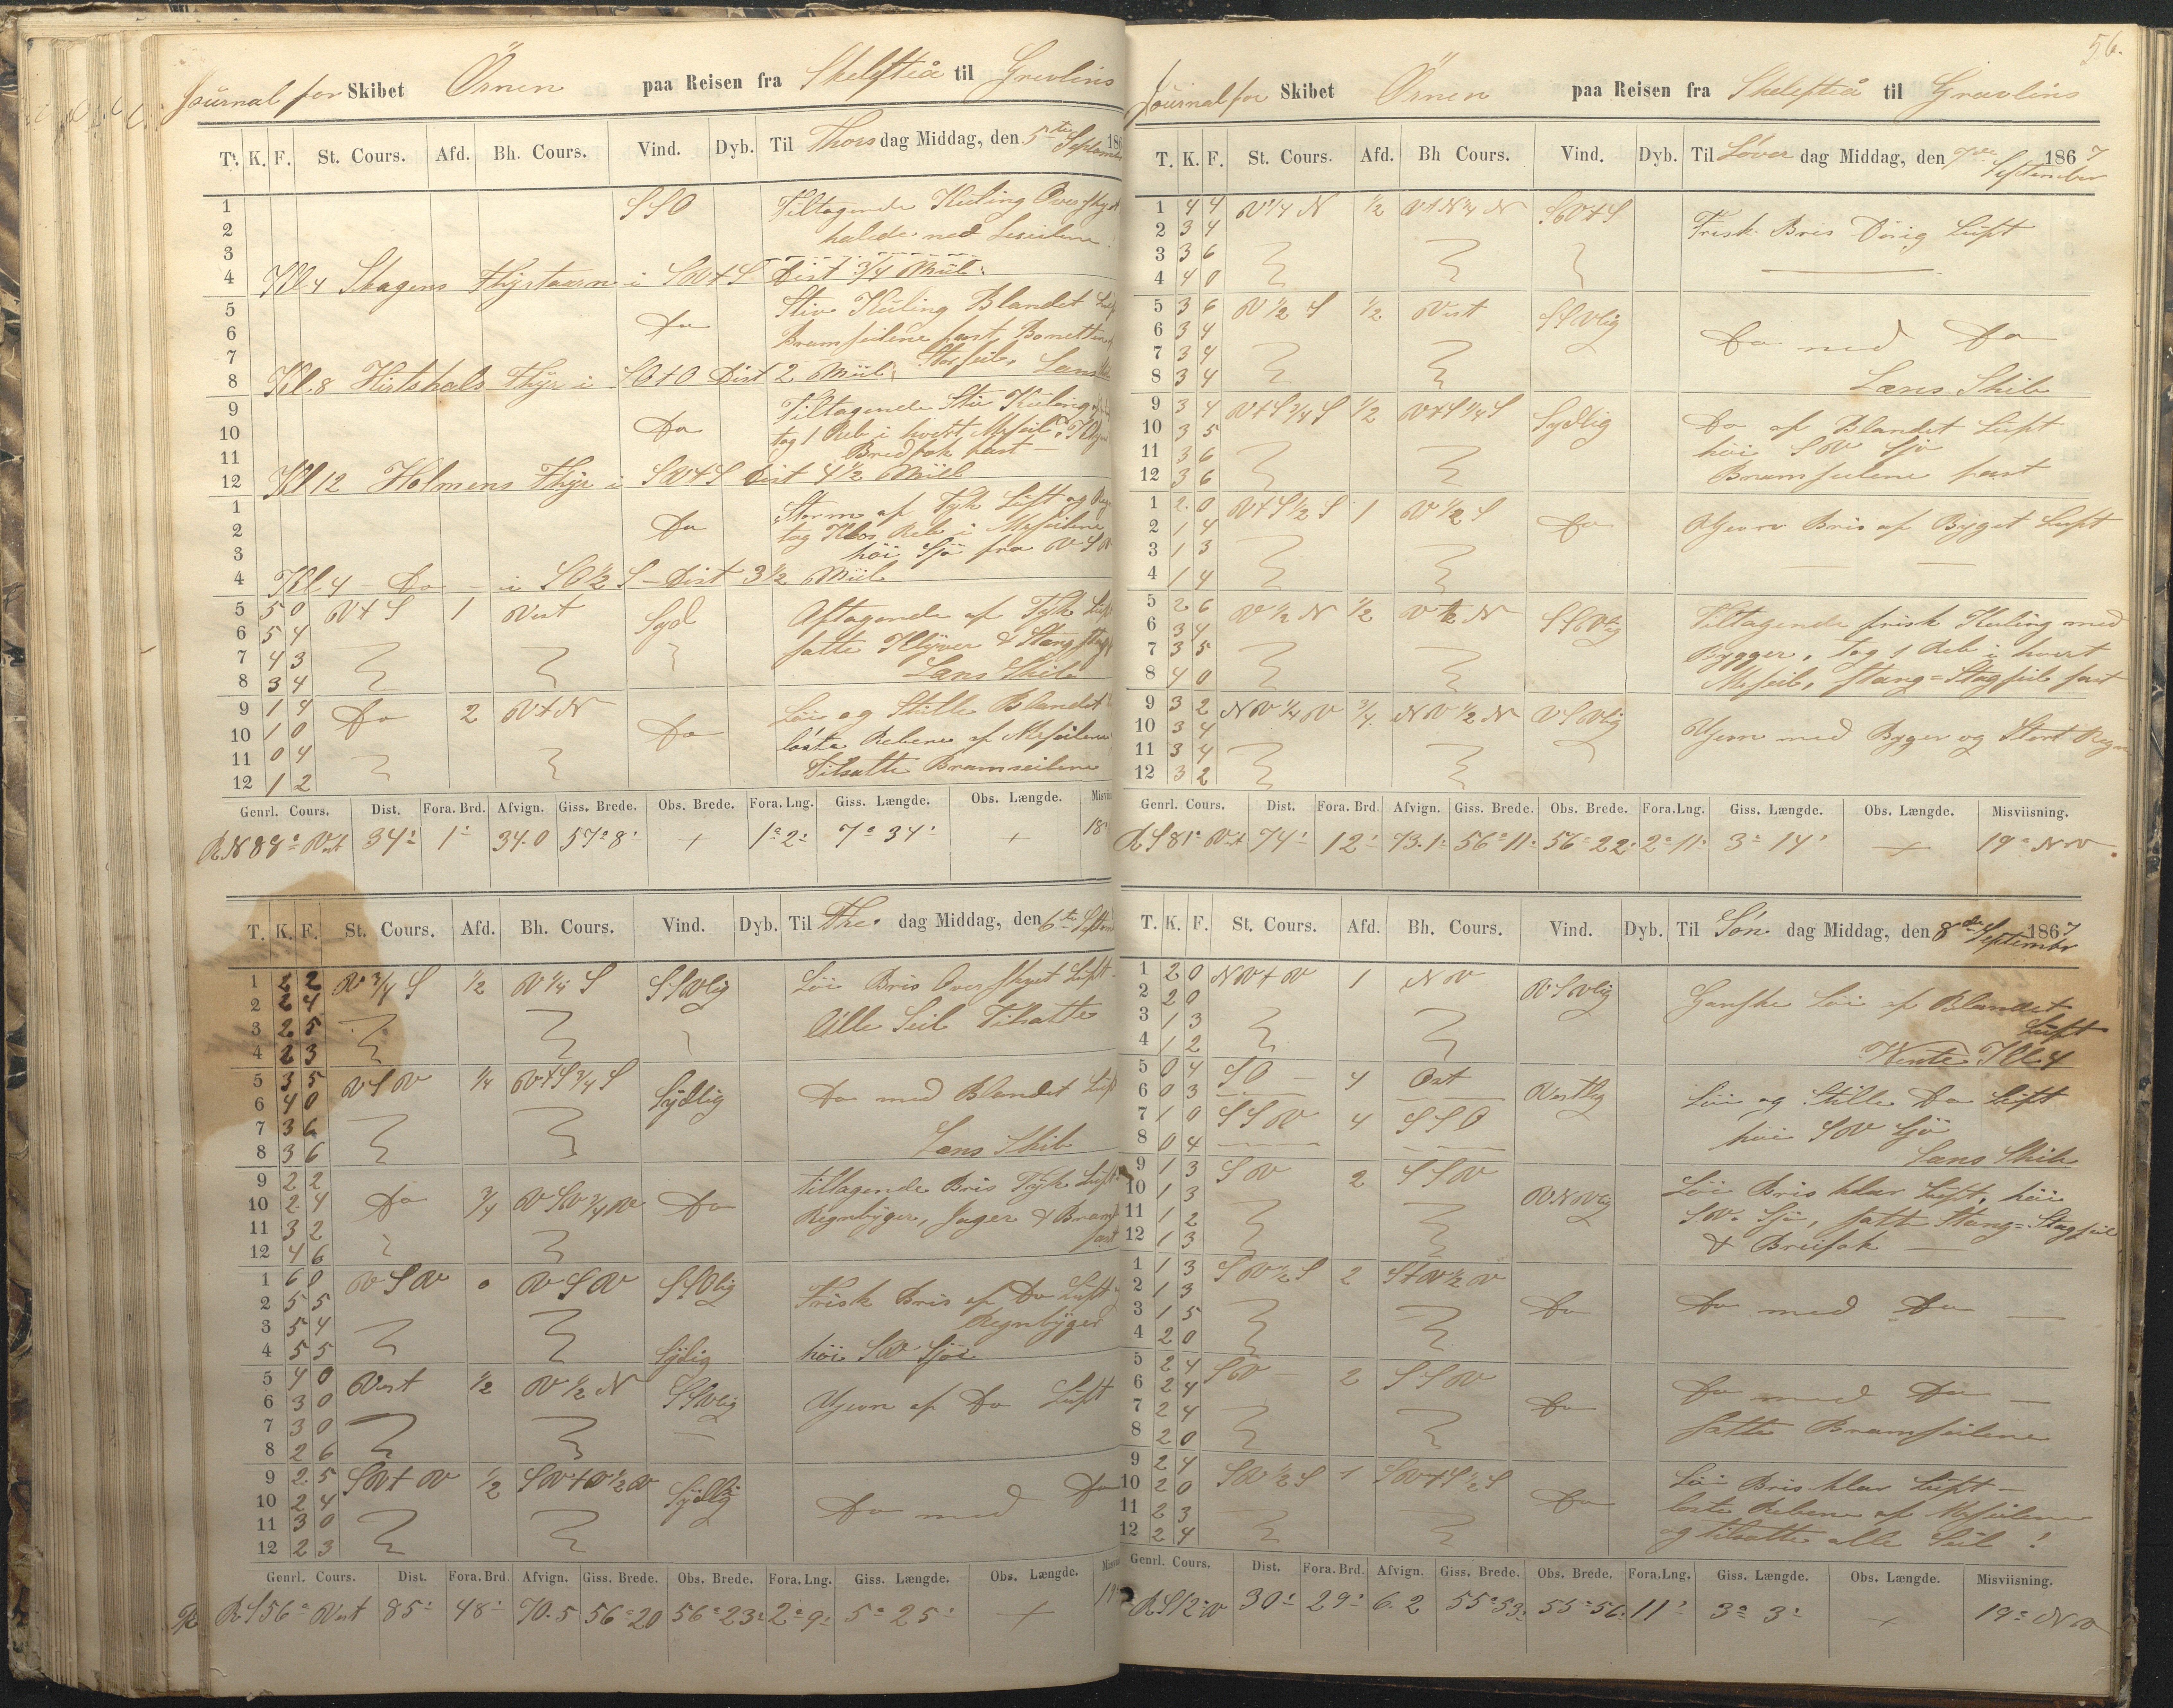 Journal for Skibet Örnen paa Reisen fra Skelefteå til Grevlins
Tt. K. F. St. Cours. Afd. Bh. Cours. Vind. Dyb. Til Thors dag Middag, den 5te September 186
1 SSO Tiltagende Kuling Overskyet
2 halede ned Leseilene
3
4 Kl 4 Skagens Fhyrtaarn i SV t S Dist 3/4 Miil.
5 Stiv Kuling Blandet Luft
6 Do Bramseilene fast Bonetten af
7 Storseil, Lans
8 Kl. 8 Hirtshals Fhyr i SO t O Dist 2 Miil
9 Tiltagende Stiv Kuling
10 Do tog 1 Reb i hvert Mrseil
11 Bredfok fast —
12 Kl 12 Holmens Fhyr i SV t S Dist 4 1/2 Miil
1 Storm af Tyk Luft og Regn
2 Do tog Klos Reb i Mrseilene
3 höi Sjö fra VSV
4 Kl. 4 — Do — i SO 1/2 S — Dist 3 1/2 Miil
5 5 0 V t S 1 Vest Syd Aftagende af Tyk Luft
6 5 4 satte Klyver & Stang stags
7 4 3 Lans Skib
8 3 4
9 1 4 Do 2 V t N Do Löi og Stille Blandet
10 1 0 löste Rebene af Mrseilene
11 0 4 Tilsatte Bramseilene
12 1 2
Genrl. Cours. Dist. Fora. Brd. Afvign. Giss. Brede. Obs. Brede. Fora. Lng. Giss. Længde. Obs. Længde. Misviis
R N 88° Vest 34' 1' 34.0 57° 8' + 1° 2' 7° 34' + 18°
T. K. F. St. Cours. Afd. Bh. Cours. Vind. Dyb. Til Fre. dag Middag, den 6te Septem
1 2 2 V 3/4 S 1/2 V 1/4 S SSVlig Löi Bris Overskyet Luft
2 2 4 Alle Seil Tilsatte
3 2 5
4 2 3
5 3 5 VSV 1/4 V t S 3/4 S Sydlig Do med Blandet Luft
6 4 0
7 3 6 Lans Skib
8 3 6
9 2 2 Do 3/4 VSV 3/4 V Do tiltagende Bris Tyk Luft
10 2 4 Regnbyger, Jager & Bram
11 3 2 fast
12 4 6
1 6 0 VSV 0 VSV SSVlig Frisk Bris af Do Luft
2 5 5 Regnbyger
3 5 4
4 5 5 Sydlig höi SV Sjöe
5 4 0 Vest 1/2 V 1/2 N SSVlig Ujevn af Do Luft
6 3 0
7 3 0
8 2 6
9 2 5 SV t V 1/2 SV t V 1/2 V Sydlig Do med Do
10 2 4
11 3 0
12 2 3
Genrl. Cours. Dist. Fora. Brd. Afvign. Giss. Brede. Obs. Brede. Fora. Lng. Giss. Længde. Obs. Længde. Misvis
R S 56° Vest 85' 48' 70.5 56° 20 56° 23' 2° 9' 5° 25' + 19°
56.
Journal for Skibet Örnen paa Reisen fra Skelefteå til Gravlins
T. K. F. St. Cours. Afd. Bh Cours. Vind. Dyb. Til Löver dag Middag, den 7de September 1867
1 4 4 V 1/4 N 1/2 V t N 1/4 N SV t S Frisk Bris Disig Luft
2 3 4
3 3 6
4 4 0
5 3 6 V 1/2 S 1/2 Vest SSVlig
6 3 4 Do med Do
7 3 4
8 3 4 Læns Skib
9 3 4 V t S 3/4 S 1/2 V t S 1/4 S Sydlig Do af Blandet Luft
10 3 5 höi SV Sjö
11 3 6 Bramseilene fast
12 3 6
1 2 0 V t S 1/2 S 1 V 1/2 S Do Ujevn Bris af Byget Luft
2 1 4
3 1 3
4 1 4
5 2 6 V 1/2 N 1/2 V 1/2 N SSVlig Tiltagende frisk Kuling med
6 3 4 Bygger, tog 1 Reb i hvert
7 3 5 Mrseil, Stang=Stagseil fast
8 4 0
9 3 2 NV 1/4 V 3/4 NV 1/2 N VSVlig Ujevn med Byger og Stert Regn
10 3 4
11 3 4
12 3 2
Genrl. Cours. Dist. Fora. Brd. Afvign. Giss. Brede. Obs. Brede. Fora. Lng. Giss. Længde. Obs. Længde. Misviisning.
R S 81° Vest 74' 12' 73.1 56° 11' 56° 22' 2° 11' 3° 14' + 19° NV
T. K. F. St. Cours. Afd. Bh. Cours. Vind. Dyb. Til Sön dag Middag, den 8de September 1867
1 2 0 NV t V 1 NV VSVlig Ganske Löi af Blandet
2 2 0 Luft
3 1 3
4 1 2 Vente Kl 4
5 0 4 SO — 4 Ost Vestlig Löi og Stille Do Luft
6 0 3
7 1 0 SSV 4 SSO höi SV Sjö
8 0 4 Lans Skib
9 1 3 SV 2 SSV VNVlig Löi Bris klar Luft, höi
10 1 3 SV. Sjö, satte Stang=Stagseil
11 1 2 & Breifok —
12 1 3
1 1 3 SV 1/2 S 2 S t V 1/2 V Do Do med Do —
2 1 3
3 1 5
4 2 0
5 2 4 SV — 2 SSV Do Do med Do —
6 2 4
7 2 4 satte Bramseilene
8 2 0
9 2 4 SV 1/2 S 1 SV t S 1/2 S Do Löi Bris klar Luft —
10 2 0 löste Rebene af Mrseilene
11 2 3 og tilsatte alle Seil !
12 2 4
Genrl. Cours. Dist. Fora. Brd. Afvign. Giss. Brede. Obs. Brede. Fora. Lng. Giss. Længde. Obs. Længde. Misviisning.
R S 12° V 30' 29' 6.2 55° 53' 55° 56' 11' 3° 3' + 19° NV